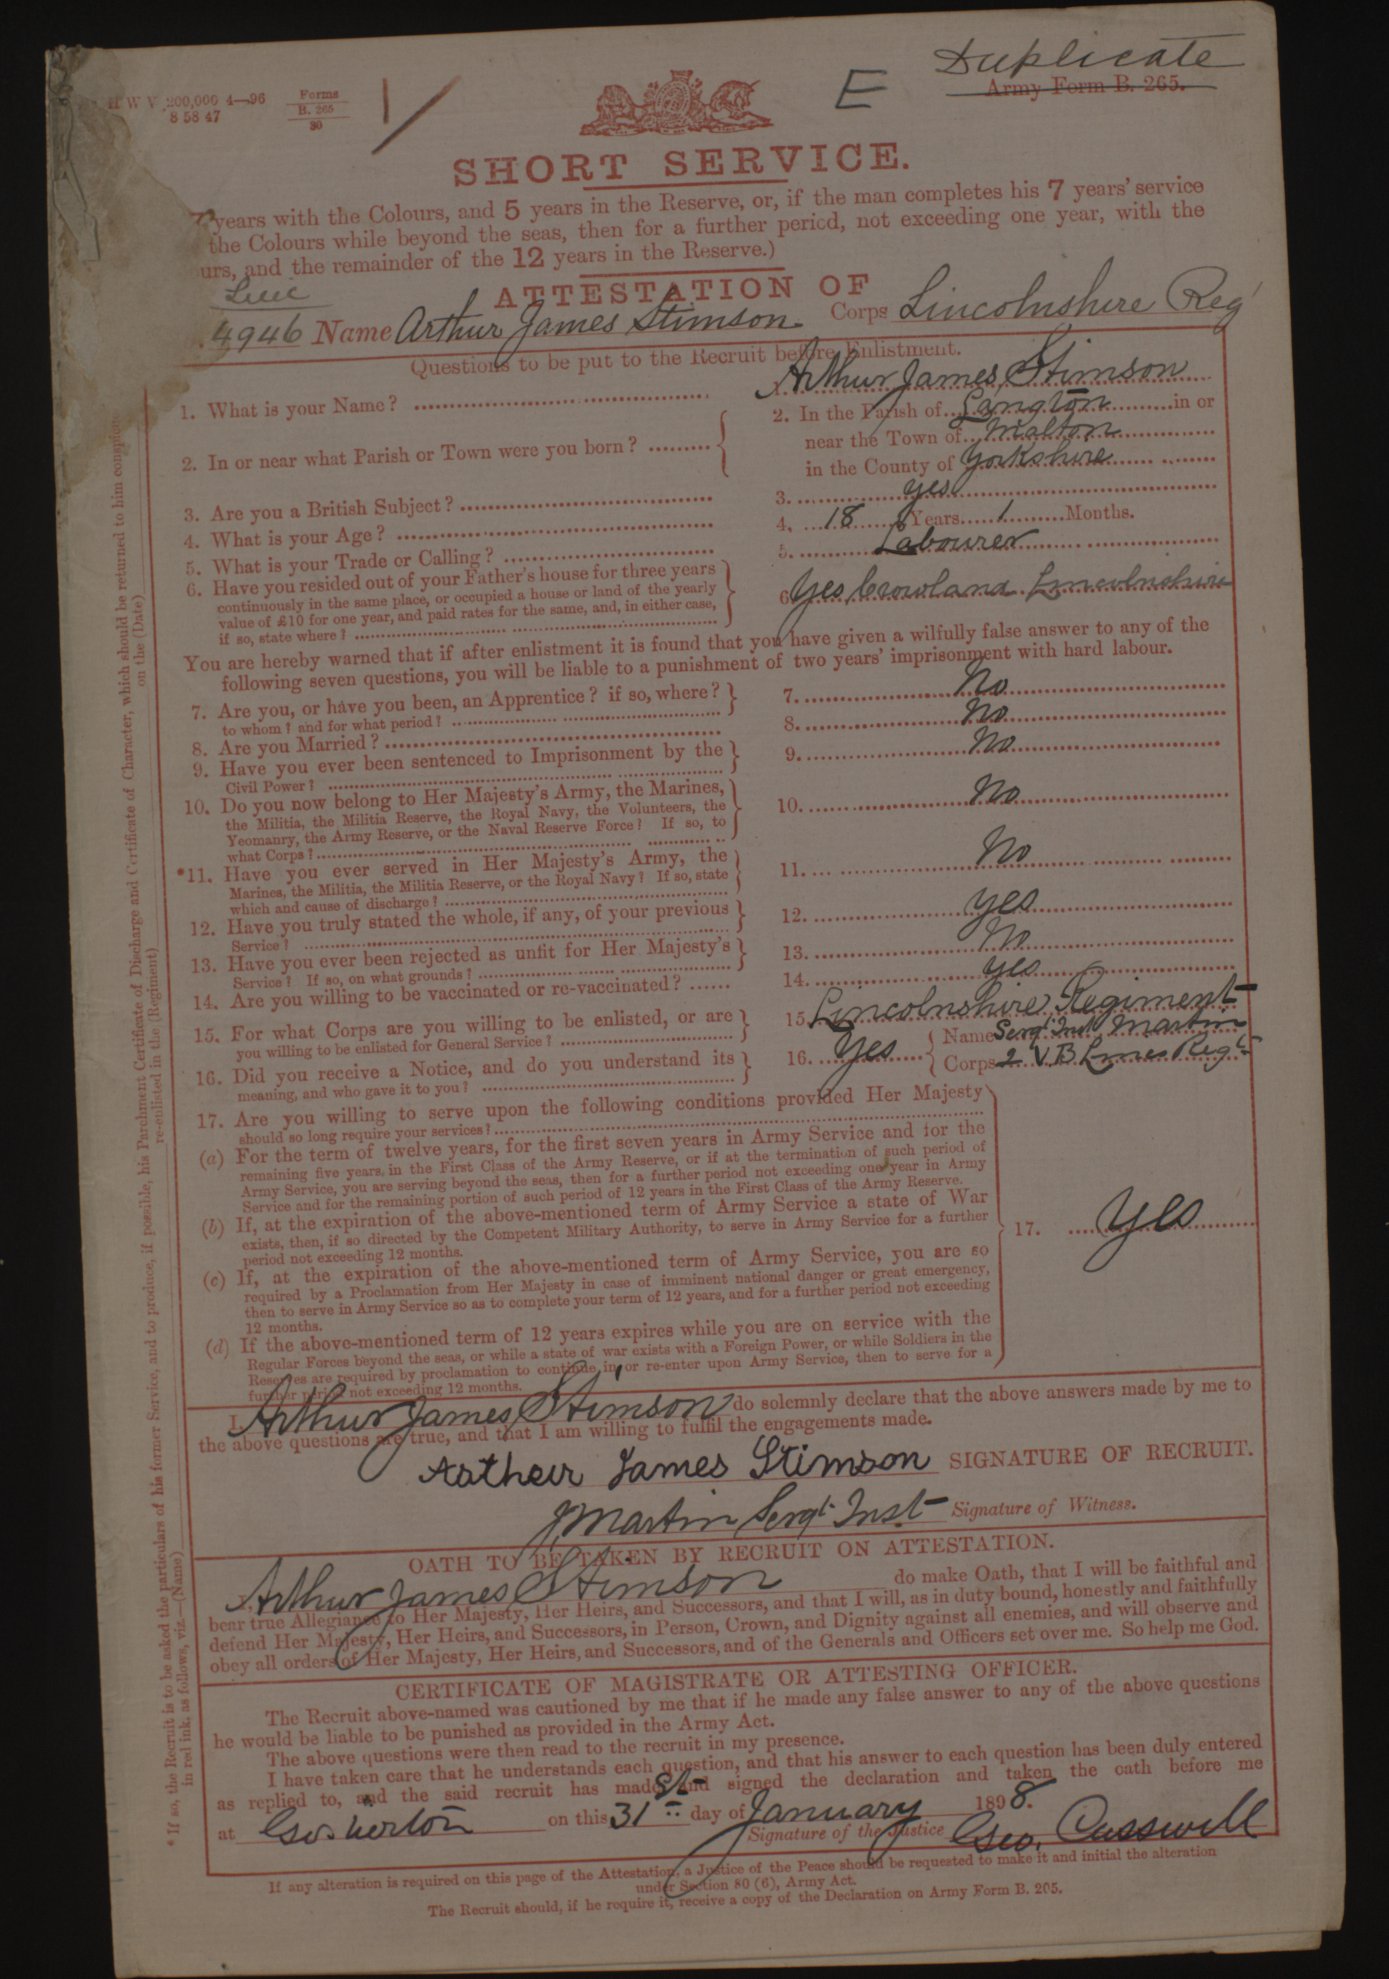 Duplicate
E
Army Form B. 265.
H W V 200,000 4—96
8 58 47
Forms
B. 265
30
SHORT SERVICE.
years with the Colours, and 5 years in the Reserve, or, if the man completes his 7 years' service
the Colours while beyond the seas, then for a further period, not exceeding one year, with the
urs, and the remainder of the 12 years in the Reserve.)
ATTESTATION OF
4946 Name Arthur James Stimson Corps Lincolnshire Reg
Questions to be put to the Recruit before Enlistment.
1. What is your Name? 1. Arthur James Stimson
2. In or near what Parish or Town were you born? 2. In the Parish of Langton in or
near the Town of Malton
in the County of Yorkshire
3. Are you a British Subject? 3. Yes
4. What is your Age? 4. 18 Years 1 Months.
5. What is your Trade or Calling? 5. Labourer
6. Have you resided out of your Father's house for three years
continuously in the same place, or occupied a house or land of the yearly
value of £10 for one year, and paid rates for the same, and, in either case,
if so, state where? 6 Yes, Crowland Lincolnshire
You are hereby warned that if after enlistment it is found that you have given a wilfully false answer to any of the
following seven questions, you will be liable to a punishment of two years' imprisonment with hard labour.
7. Are you, or have you been, an Apprentice? if so, where? 7. No
to whom? and for what period?
8. Are you Married? 8. No
9. Have you ever been sentenced to Imprisonment by the 9. No
Civil Power?
10. Do you now belong to Her Majesty's Army, the Marines,
the Militia, the Militia Reserve, the Royal Navy, the Volunteers, the 10. No
Yeomanry, the Army Reserve, or the Naval Reserve Force? If so, to
what Corps?
*11. Have you ever served in Her Majesty's Army, the
Marines, the Militia, the Militia Reserve, or the Royal Navy? If so, state 11. No
which and cause of discharge?
12. Have you truly stated the whole, if any, of your previous 12. Yes
Service?
13. Have you ever been rejected as unfit for Her Majesty's 13. No
Service? If so, on what grounds?
14. Are you willing to be vaccinated or re-vaccinated? 14. Yes
15. For what Corps are you willing to be enlisted, or are 15. Lincolnshire Regiment
you willing to be enlisted for General Service?
16. Did you receive a Notice, and do you understand its 16. Yes Name Sergt Inst Martin
meaning, and who gave it to you? Corps 2 V B Lincs Regt
17. Are you willing to serve upon the following conditions provided Her Majesty
should so long require your services?
(a) For the term of twelve years, for the first seven years in Army Service and for the
remaining five years, in the First Class of the Army Reserve, or if at the termination of such period of
Army Service, you are serving beyond the seas, then for a further period not exceeding one year in Army
Service and for the remaining portion of such period of 12 years in the First Class of the Army Reserve.
(b) If, at the expiration of the above-mentioned term of Army Service a state of War
exists, then, if so directed by the Competent Military Authority, to serve in Army Service for a further
period not exceeding 12 months. 17. Yes
(c) If, at the expiration of the above-mentioned term of Army Service, you are so
required by a Proclamation from Her Majesty in case of imminent national danger or great emergency,
then to serve in Army Service so as to complete your term of 12 years, and for a further period not exceeding
12 months.
(d) If the above-mentioned term of 12 years expires while you are on service with the
Regular Forces beyond the seas, or while a state of war exists with a Foreign Power, or while Soldiers in the
Reserves are required by proclamation to continue in or re-enter upon Army Service, then to serve for a
further period not exceeding 12 months.
I, Arthur James Stimson do solemnly declare that the above answers made by me to
the above questions are true, and that I am willing to fulfil the engagements made.
Arthur James Stimson SIGNATURE OF RECRUIT.
J Martin Sergt Inst Signature of Witness.
OATH TO BE TAKEN BY RECRUIT ON ATTESTATION.
Arthur James Stimson do make Oath, that I will be faithful and
bear true Allegiance to Her Majesty, Her Heirs, and Successors, and that I will, as in duty bound, honestly and faithfully
defend Her Majesty, Her Heirs, and Successors, in Person, Crown, and Dignity against all enemies, and will observe and
obey all orders of Her Majesty, Her Heirs, and Successors, and of the Generals and Officers set over me. So help me God.
CERTIFICATE OF MAGISTRATE OR ATTESTING OFFICER.
The Recruit above-named was cautioned by me that if he made any false answer to any of the above questions
he would be liable to be punished as provided in the Army Act.
The above questions were then read to the recruit in my presence.
I have taken care that he understands each question, and that his answer to each question has been duly entered
as replied to, and the said recruit has made and signed the declaration and taken the oath before me
at Gosberton on this 31st day of January 1898.
Signature of the Justice Geo. Casswell
If any alteration is required on this page of the Attestation, a Justice of the Peace should be requested to make it and initial the alteration
under Section 80 (6), Army Act.
The Recruit should, if he require it, receive a copy of the Declaration on Army Form B. 265.
* If so, the Recruit is to be asked the particulars of his former Service, and to produce, if possible, his Parchment Certificate of Discharge and Certificate of Character, which should be returned to him
in red ink, as follows, viz.—(Name) re-enlisted in the (Regiment) on the (Date)